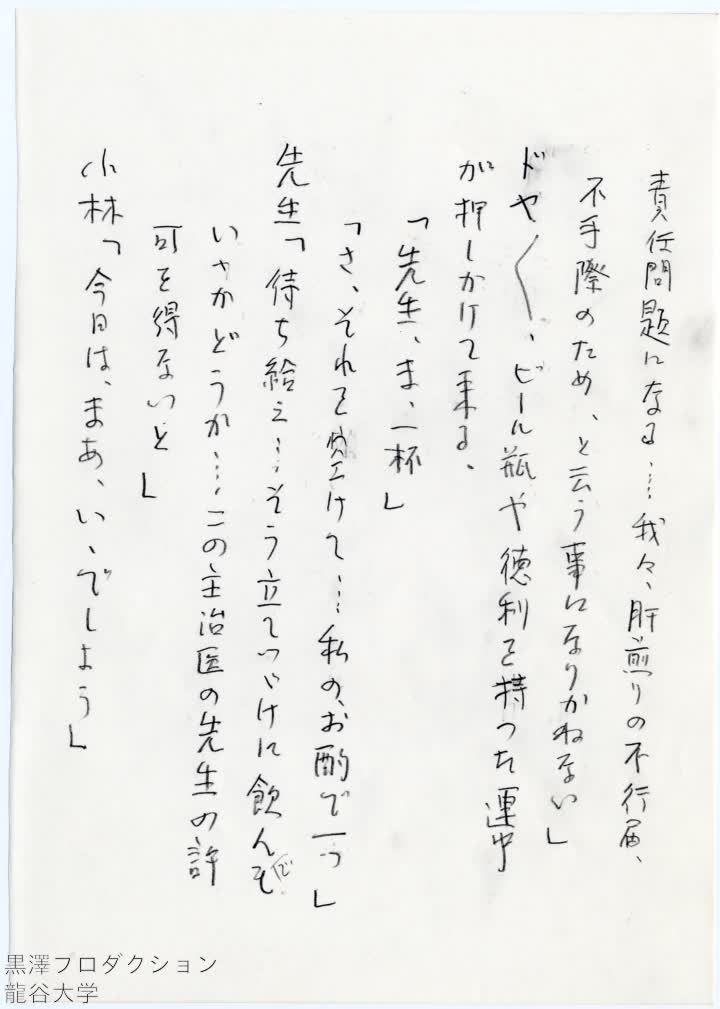 責任問題になる…我々、肝煎りの不行届、
不手際のため、と云う事になりかねない」
ドヤ〱、ビール瓶や徳利を持った連中
が押しかけて来る、
「先生、ま、一杯」
「さ、それを空けて…私の、お酌で一つ」
先生「待ち給え…そう立てつづけに飲んで
いゝかどうか…この主治医の先生の許
可を得ないと」
小林「今日は、まあ、いゝでしょう」
黒澤プロダクション
龍谷大学